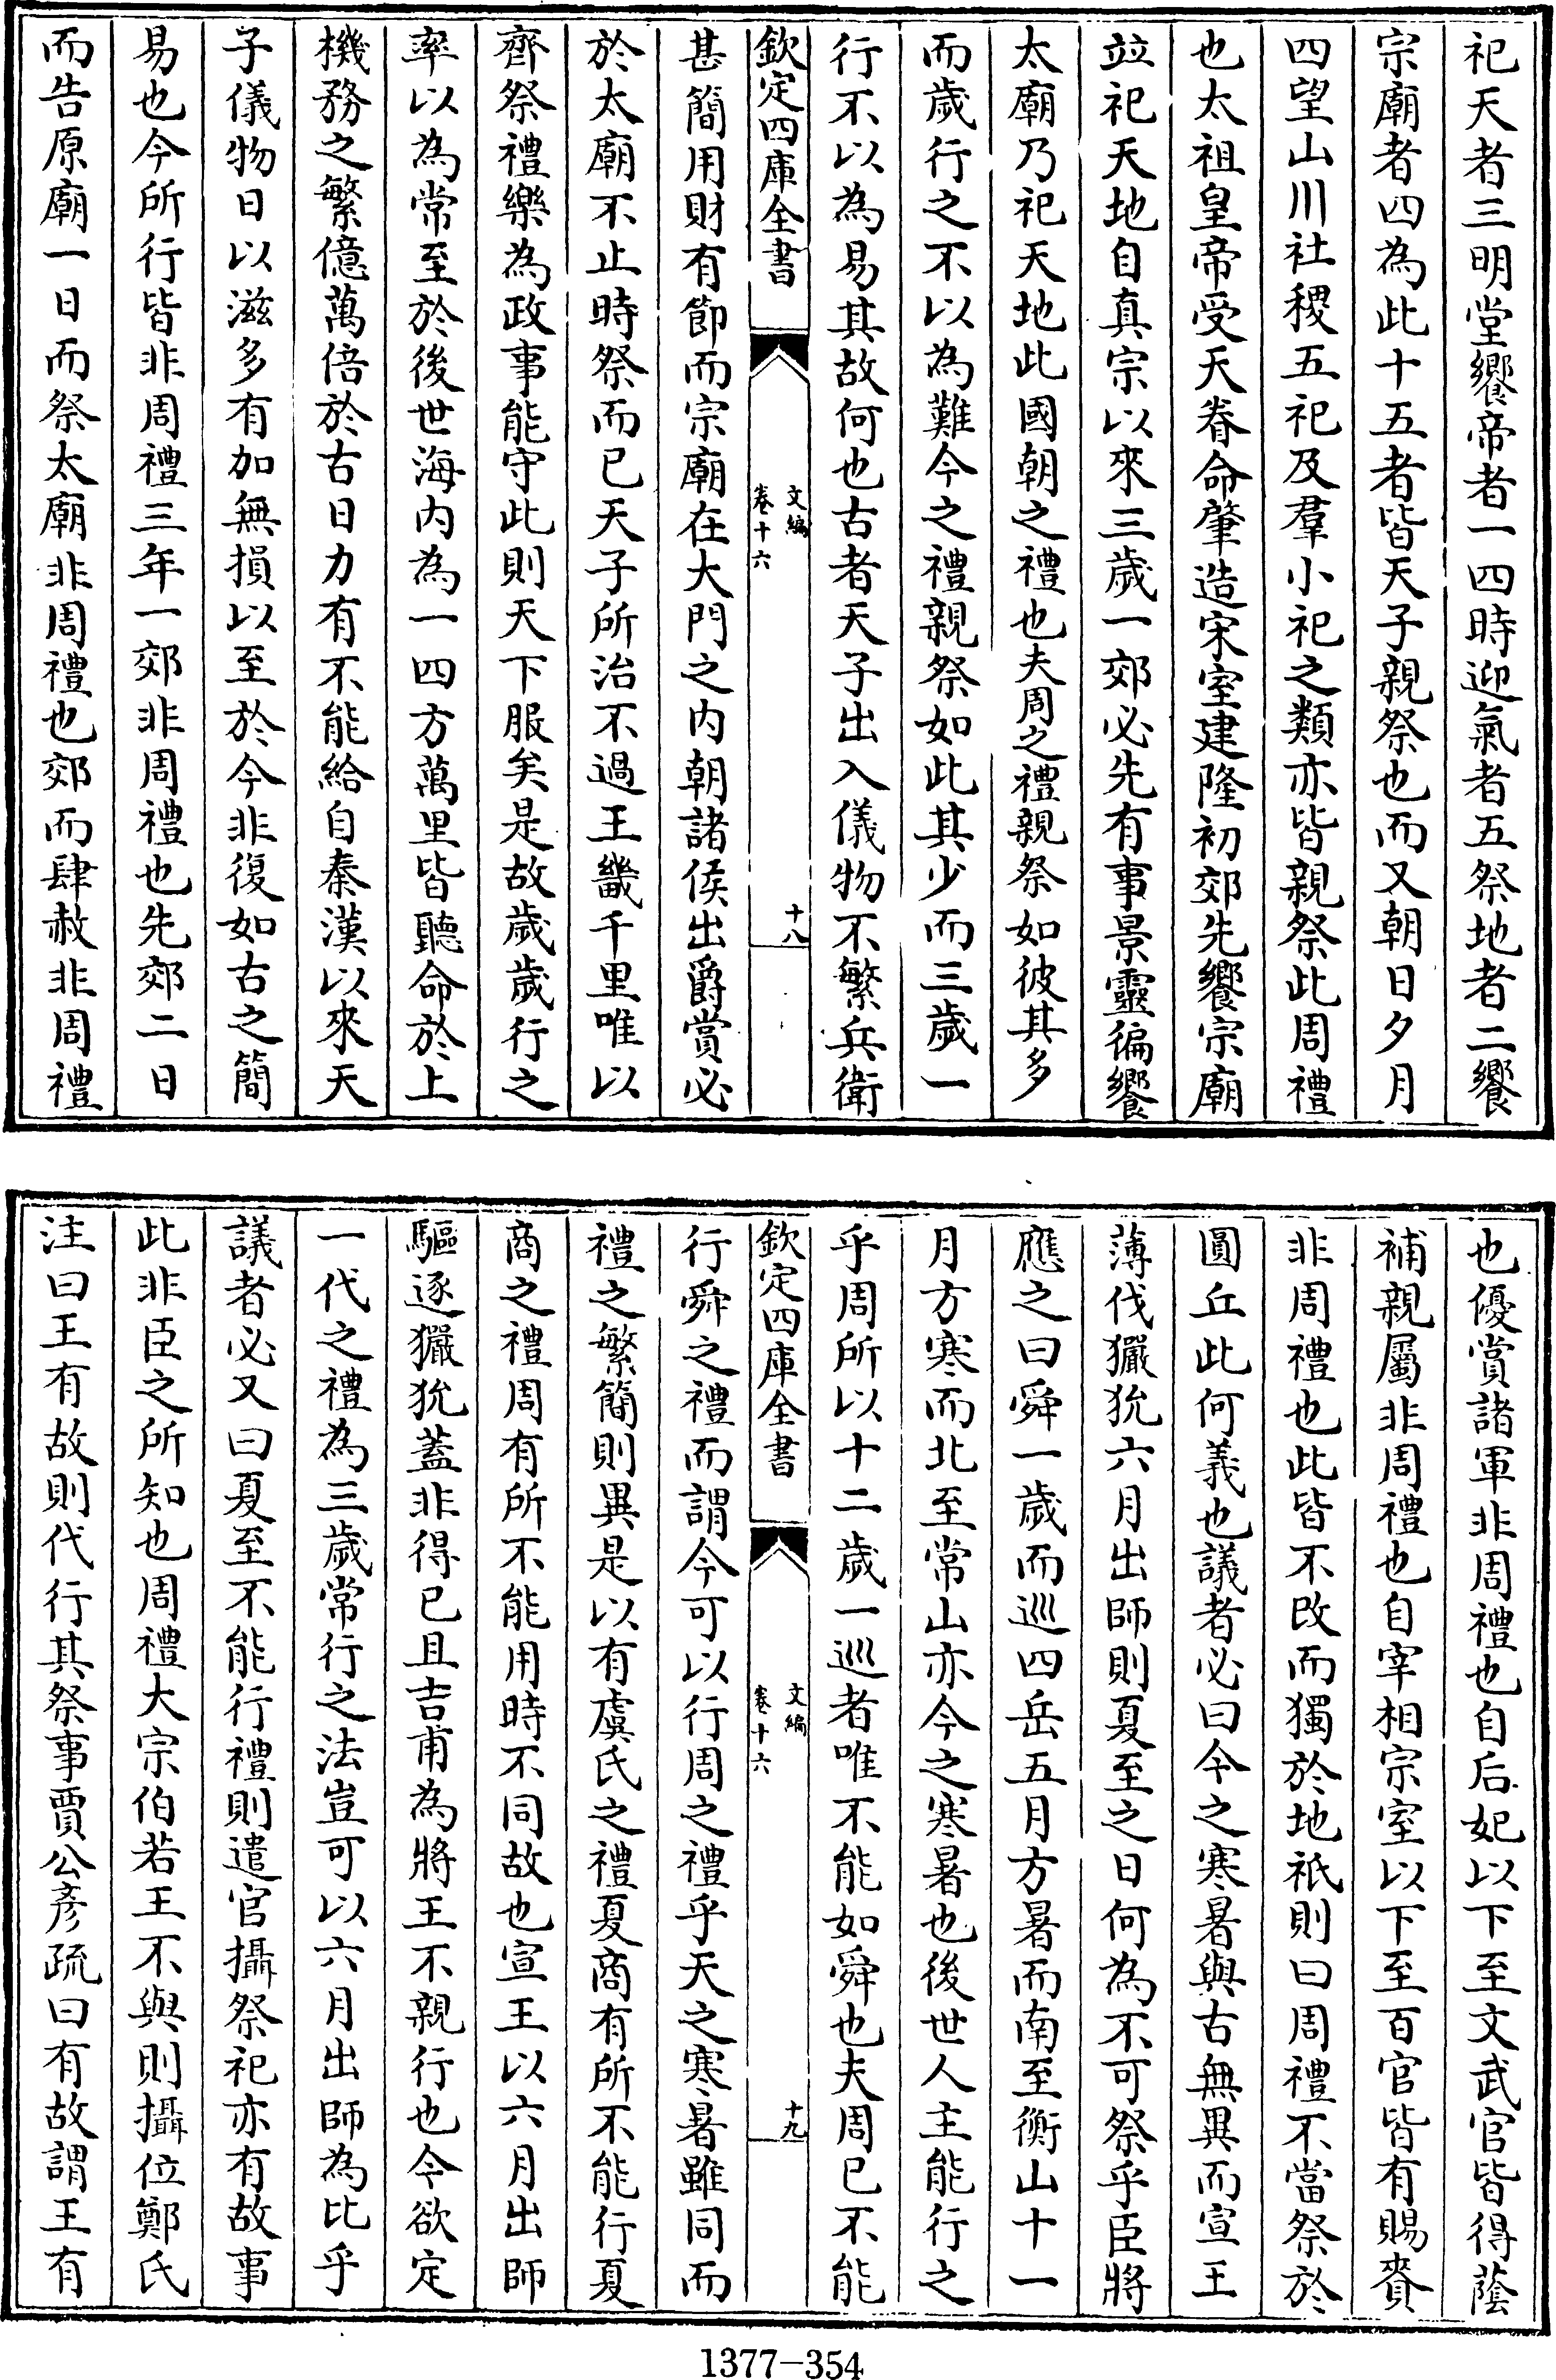 祀天者三明堂饗帝者一四時迎氣者五祭地者二饗
宗廟者四為此十五者皆天子親祭也而又朝日夕月
四望山川社稷五祀及羣小祀之類亦皆親祭此周禮
也太祖皇帝受天眷命肇造宋室建隆初郊先饗宗廟
竝祀天地自真宗以來三歲一郊必先有事景靈徧饗
太廟乃祀天地此國朝之禮也夫周之禮親祭如彼其多
而歲行之不以為難今之禮親祭如此其少而三歲一
行不以為易其故何也古者天子出入儀物不繁兵衛
欽定四庫全書
文編
卷十六
十八
甚簡用財有節而宗廟在大門之內朝諸侯出爵賞必
於太廟不止時祭而已天子所治不過王畿千里唯以
齊祭禮樂為政事能守此則天下服矣是故歲歲行之
率以為常至於後世海內為一四方萬里皆聽命於上
機務之繁億萬倍於古日力有不能給自秦漢以來天
子儀物日以滋多有加無損以至於今非復如古之簡
易也今所行皆非周禮三年一郊非周禮也先郊二日
而告原廟一日而祭太廟非周禮也郊而肆赦非周禮
也優賞諸軍非周禮也自后妃以下至文武官皆得蔭
補親屬非周禮也自宰相宗室以下至百官皆有賜賚
非周禮也此皆不改而獨於地祇則曰周禮不當祭於
圓丘此何義也議者必曰今之寒暑與古無異而宣王
薄伐玁狁六月出師則夏至之日何為不可祭乎臣將
應之曰舜一歲而巡四岳五月方暑而南至衡山十一
月方寒而北至常山亦今之寒暑也後世人主能行之
乎周所以十二歲一巡者唯不能如舜也夫周已不能
欽定四庫全書
文編
卷十六
十九
行舜之禮而謂今可以行周之禮乎天之寒暑雖同而
禮之繁簡則異是以有虞氏之禮夏商有所不能行夏
商之禮周有所不能用時不同故也宣王以六月出師
驅逐玁狁蓋非得已且吉甫為將王不親行也今欲定
一代之禮為三歲常行之法豈可以六月出師為比乎
議者必又曰夏至不能行禮則遣官攝祭祀亦有故事
此非臣之所知也周禮大宗伯若王不與則攝位鄭氏
注曰王有故則代行其祭事賈公彥疏曰有故謂王有
1377-354